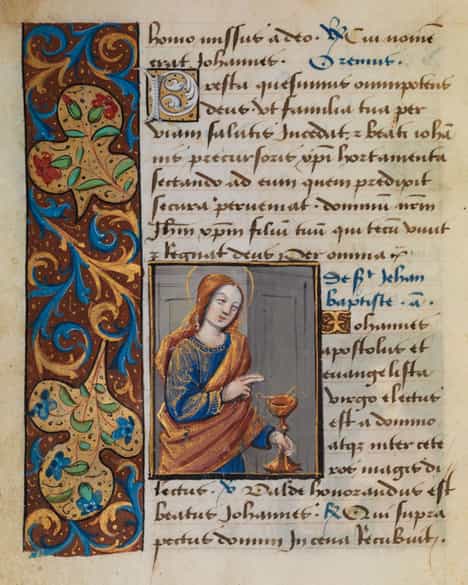 homo missus a deo. ℟ Cui nome
erat Johannes. Oremus.
Presta quesumus omnipotens
deus vt familia tua per
viam salutis Incedat, ⁊ beati ioha
nis precursoris xpi hortamenta
sectando ad eum quem predixit
secura perueniat dominu nrm
Jhm xpm filiu tuu qui tecu viuit
⁊ Regnat deus Per omnia
De st Jehan
baptiste. a.
Johannes
apostolus et
euangelista
virgo electus
est a domino
atqz inter cete
ros magis di
lectus. ℣ Valde honorandus est
beatus Johannes. ℟ Qui supra
pectus domini In cena Recubuit.